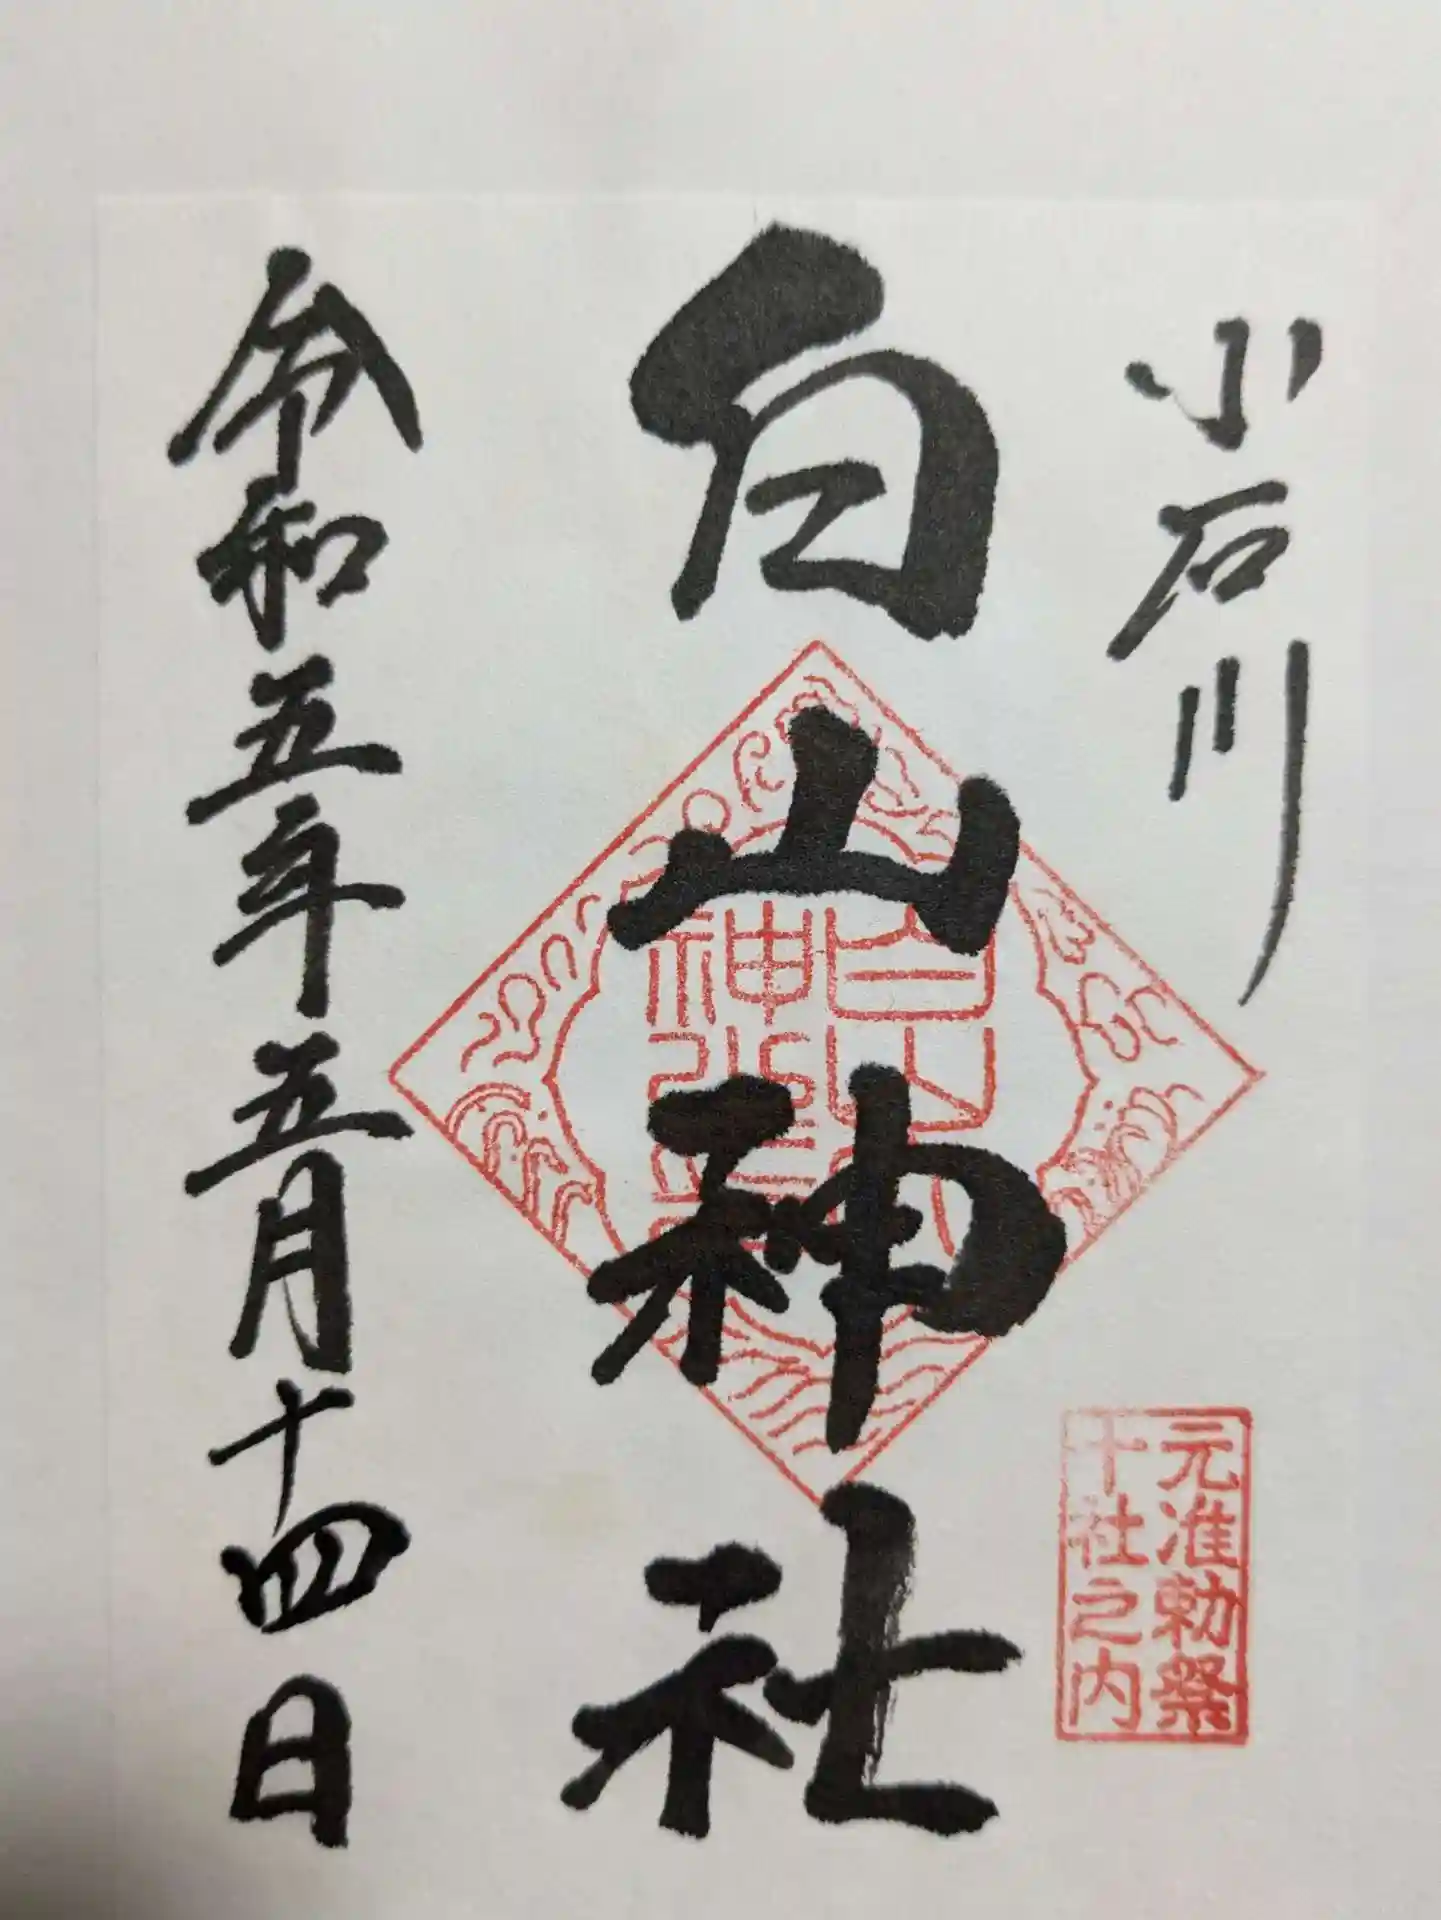 小石川
元准勅祭
十社之内
白山神社
令和五年五月十四日